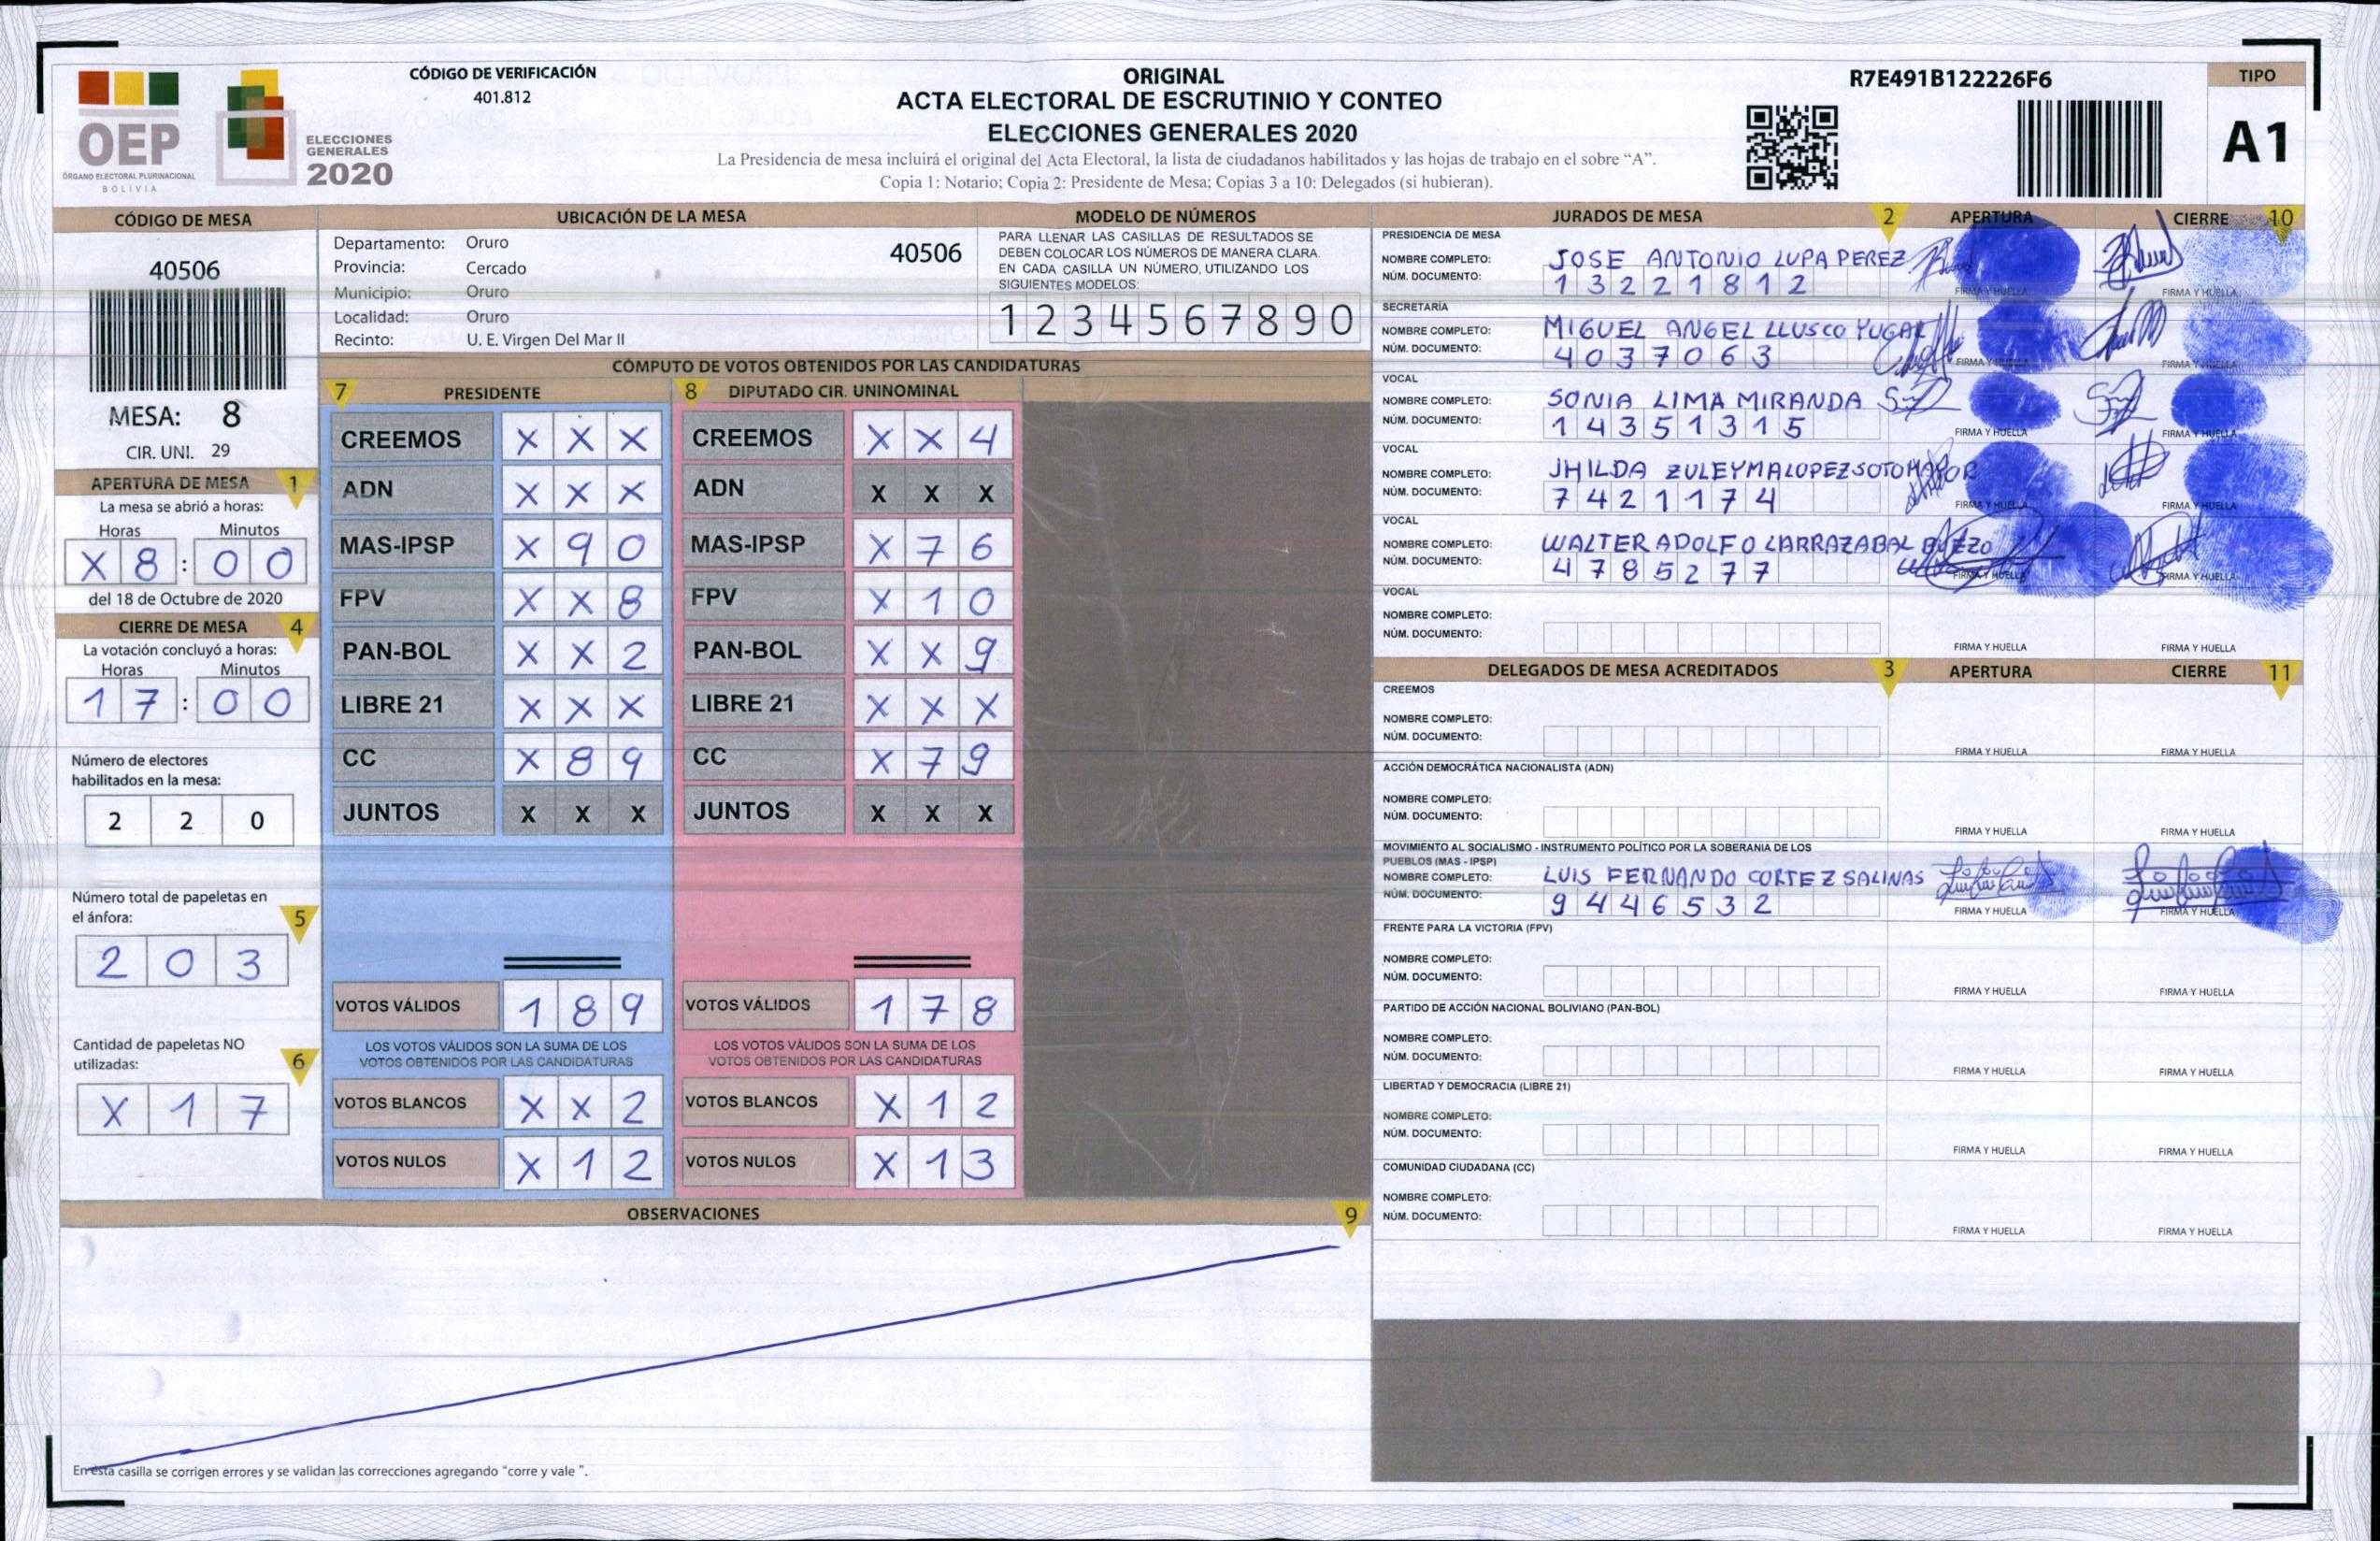 OEP
ÓRGANO ELECTORAL PLURINACIONAL
BOLIVIA
ELECCIONES
GENERALES
2020
CÓDIGO DE VERIFICACIÓN
401.812
ORIGINAL
ACTA ELECTORAL DE ESCRUTINIO Y CONTEO
ELECCIONES GENERALES 2020
La Presidencia de mesa incluirá el original del Acta Electoral, la lista de ciudadanos habilitados y las hojas de trabajo en el sobre “A”.
Copia 1: Notario; Copia 2: Presidente de Mesa; Copias 3 a 10: Delegados (si hubieran).
R7E491B122226F6
TIPO
A1
CÓDIGO DE MESA
40506
MESA: 8
CIR. UNI. 29
APERTURA DE MESA 1
La mesa se abrió a horas:
Horas Minutos
X 8 : 0 0
del 18 de Octubre de 2020
CIERRE DE MESA 4
La votación concluyó a horas:
Horas Minutos
1 7 : 0 0
Número de electores
habilitados en la mesa:
2 2 0
Número total de papeletas en
el ánfora: 5
2 0 3
Cantidad de papeletas NO
utilizadas: 6
X 1 7
UBICACIÓN DE LA MESA
Departamento: Oruro 40506
Provincia: Cercado
Municipio: Oruro
Localidad: Oruro
Recinto: U. E. Virgen Del Mar II
MODELO DE NÚMEROS
PARA LLENAR LAS CASILLAS DE RESULTADOS SE
DEBEN COLOCAR LOS NÚMEROS DE MANERA CLARA.
EN CADA CASILLA UN NÚMERO, UTILIZANDO LOS
SIGUIENTES MODELOS:
1 2 3 4 5 6 7 8 9 0
CÓMPUTO DE VOTOS OBTENIDOS POR LAS CANDIDATURAS
7 PRESIDENTE 8 DIPUTADO CIR. UNINOMINAL
CREEMOS X X X CREEMOS X X 4
ADN X X X ADN X X X
MAS-IPSP X 9 0 MAS-IPSP X 7 6
FPV X X 8 FPV X 1 0
PAN-BOL X X 2 PAN-BOL X X 9
LIBRE 21 X X X LIBRE 21 X X X
CC X 8 9 CC X 7 9
JUNTOS X X X JUNTOS X X X
VOTOS VÁLIDOS 1 8 9 VOTOS VÁLIDOS 1 7 8
LOS VOTOS VÁLIDOS SON LA SUMA DE LOS LOS VOTOS VÁLIDOS SON LA SUMA DE LOS
VOTOS OBTENIDOS POR LAS CANDIDATURAS VOTOS OBTENIDOS POR LAS CANDIDATURAS
VOTOS BLANCOS X X 2 VOTOS BLANCOS X 1 2
VOTOS NULOS X 1 2 VOTOS NULOS X 1 3
OBSERVACIONES 9
En esta casilla se corrigen errores y se validan las correcciones agregando “corre y vale ”.
JURADOS DE MESA 2 APERTURA CIERRE 10
PRESIDENCIA DE MESA
NOMBRE COMPLETO: JOSE ANTONIO LUPA PEREZ
NÚM. DOCUMENTO: 1 3 2 2 1 8 1 2 FIRMA Y HUELLA FIRMA Y HUELLA
SECRETARÍA
NOMBRE COMPLETO: MIGUEL ANGEL LLUSCO YUGAR
NÚM. DOCUMENTO: 4 0 3 7 0 6 3 FIRMA Y HUELLA FIRMA Y HUELLA
VOCAL
NOMBRE COMPLETO: SONIA LIMA MIRANDA
NÚM. DOCUMENTO: 1 4 3 5 1 3 1 5 FIRMA Y HUELLA FIRMA Y HUELLA
VOCAL
NOMBRE COMPLETO: JHILDA ZULEYMA LOPEZ SOTOMAYOR
NÚM. DOCUMENTO: 7 4 2 1 1 7 4 FIRMA Y HUELLA FIRMA Y HUELLA
VOCAL
NOMBRE COMPLETO: WALTER ADOLFO LARRAZABAL
NÚM. DOCUMENTO: 4 7 8 5 2 7 7 FIRMA Y HUELLA FIRMA Y HUELLA
VOCAL
NOMBRE COMPLETO:
NÚM. DOCUMENTO: FIRMA Y HUELLA FIRMA Y HUELLA
DELEGADOS DE MESA ACREDITADOS 3 APERTURA CIERRE 11
CREEMOS
NOMBRE COMPLETO:
NÚM. DOCUMENTO: FIRMA Y HUELLA FIRMA Y HUELLA
ACCIÓN DEMOCRÁTICA NACIONALISTA (ADN)
NOMBRE COMPLETO:
NÚM. DOCUMENTO: FIRMA Y HUELLA FIRMA Y HUELLA
MOVIMIENTO AL SOCIALISMO - INSTRUMENTO POLÍTICO POR LA SOBERANIA DE LOS
PUEBLOS (MAS - IPSP)
NOMBRE COMPLETO: LUIS FERNANDO CORTEZ SALINAS
NÚM. DOCUMENTO: 9 4 4 6 5 3 2 FIRMA Y HUELLA FIRMA Y HUELLA
FRENTE PARA LA VICTORIA (FPV)
NOMBRE COMPLETO:
NÚM. DOCUMENTO: FIRMA Y HUELLA FIRMA Y HUELLA
PARTIDO DE ACCIÓN NACIONAL BOLIVIANO (PAN-BOL)
NOMBRE COMPLETO:
NÚM. DOCUMENTO: FIRMA Y HUELLA FIRMA Y HUELLA
LIBERTAD Y DEMOCRACIA (LIBRE 21)
NOMBRE COMPLETO:
NÚM. DOCUMENTO: FIRMA Y HUELLA FIRMA Y HUELLA
COMUNIDAD CIUDADANA (CC)
NOMBRE COMPLETO:
NÚM. DOCUMENTO: FIRMA Y HUELLA FIRMA Y HUELLA